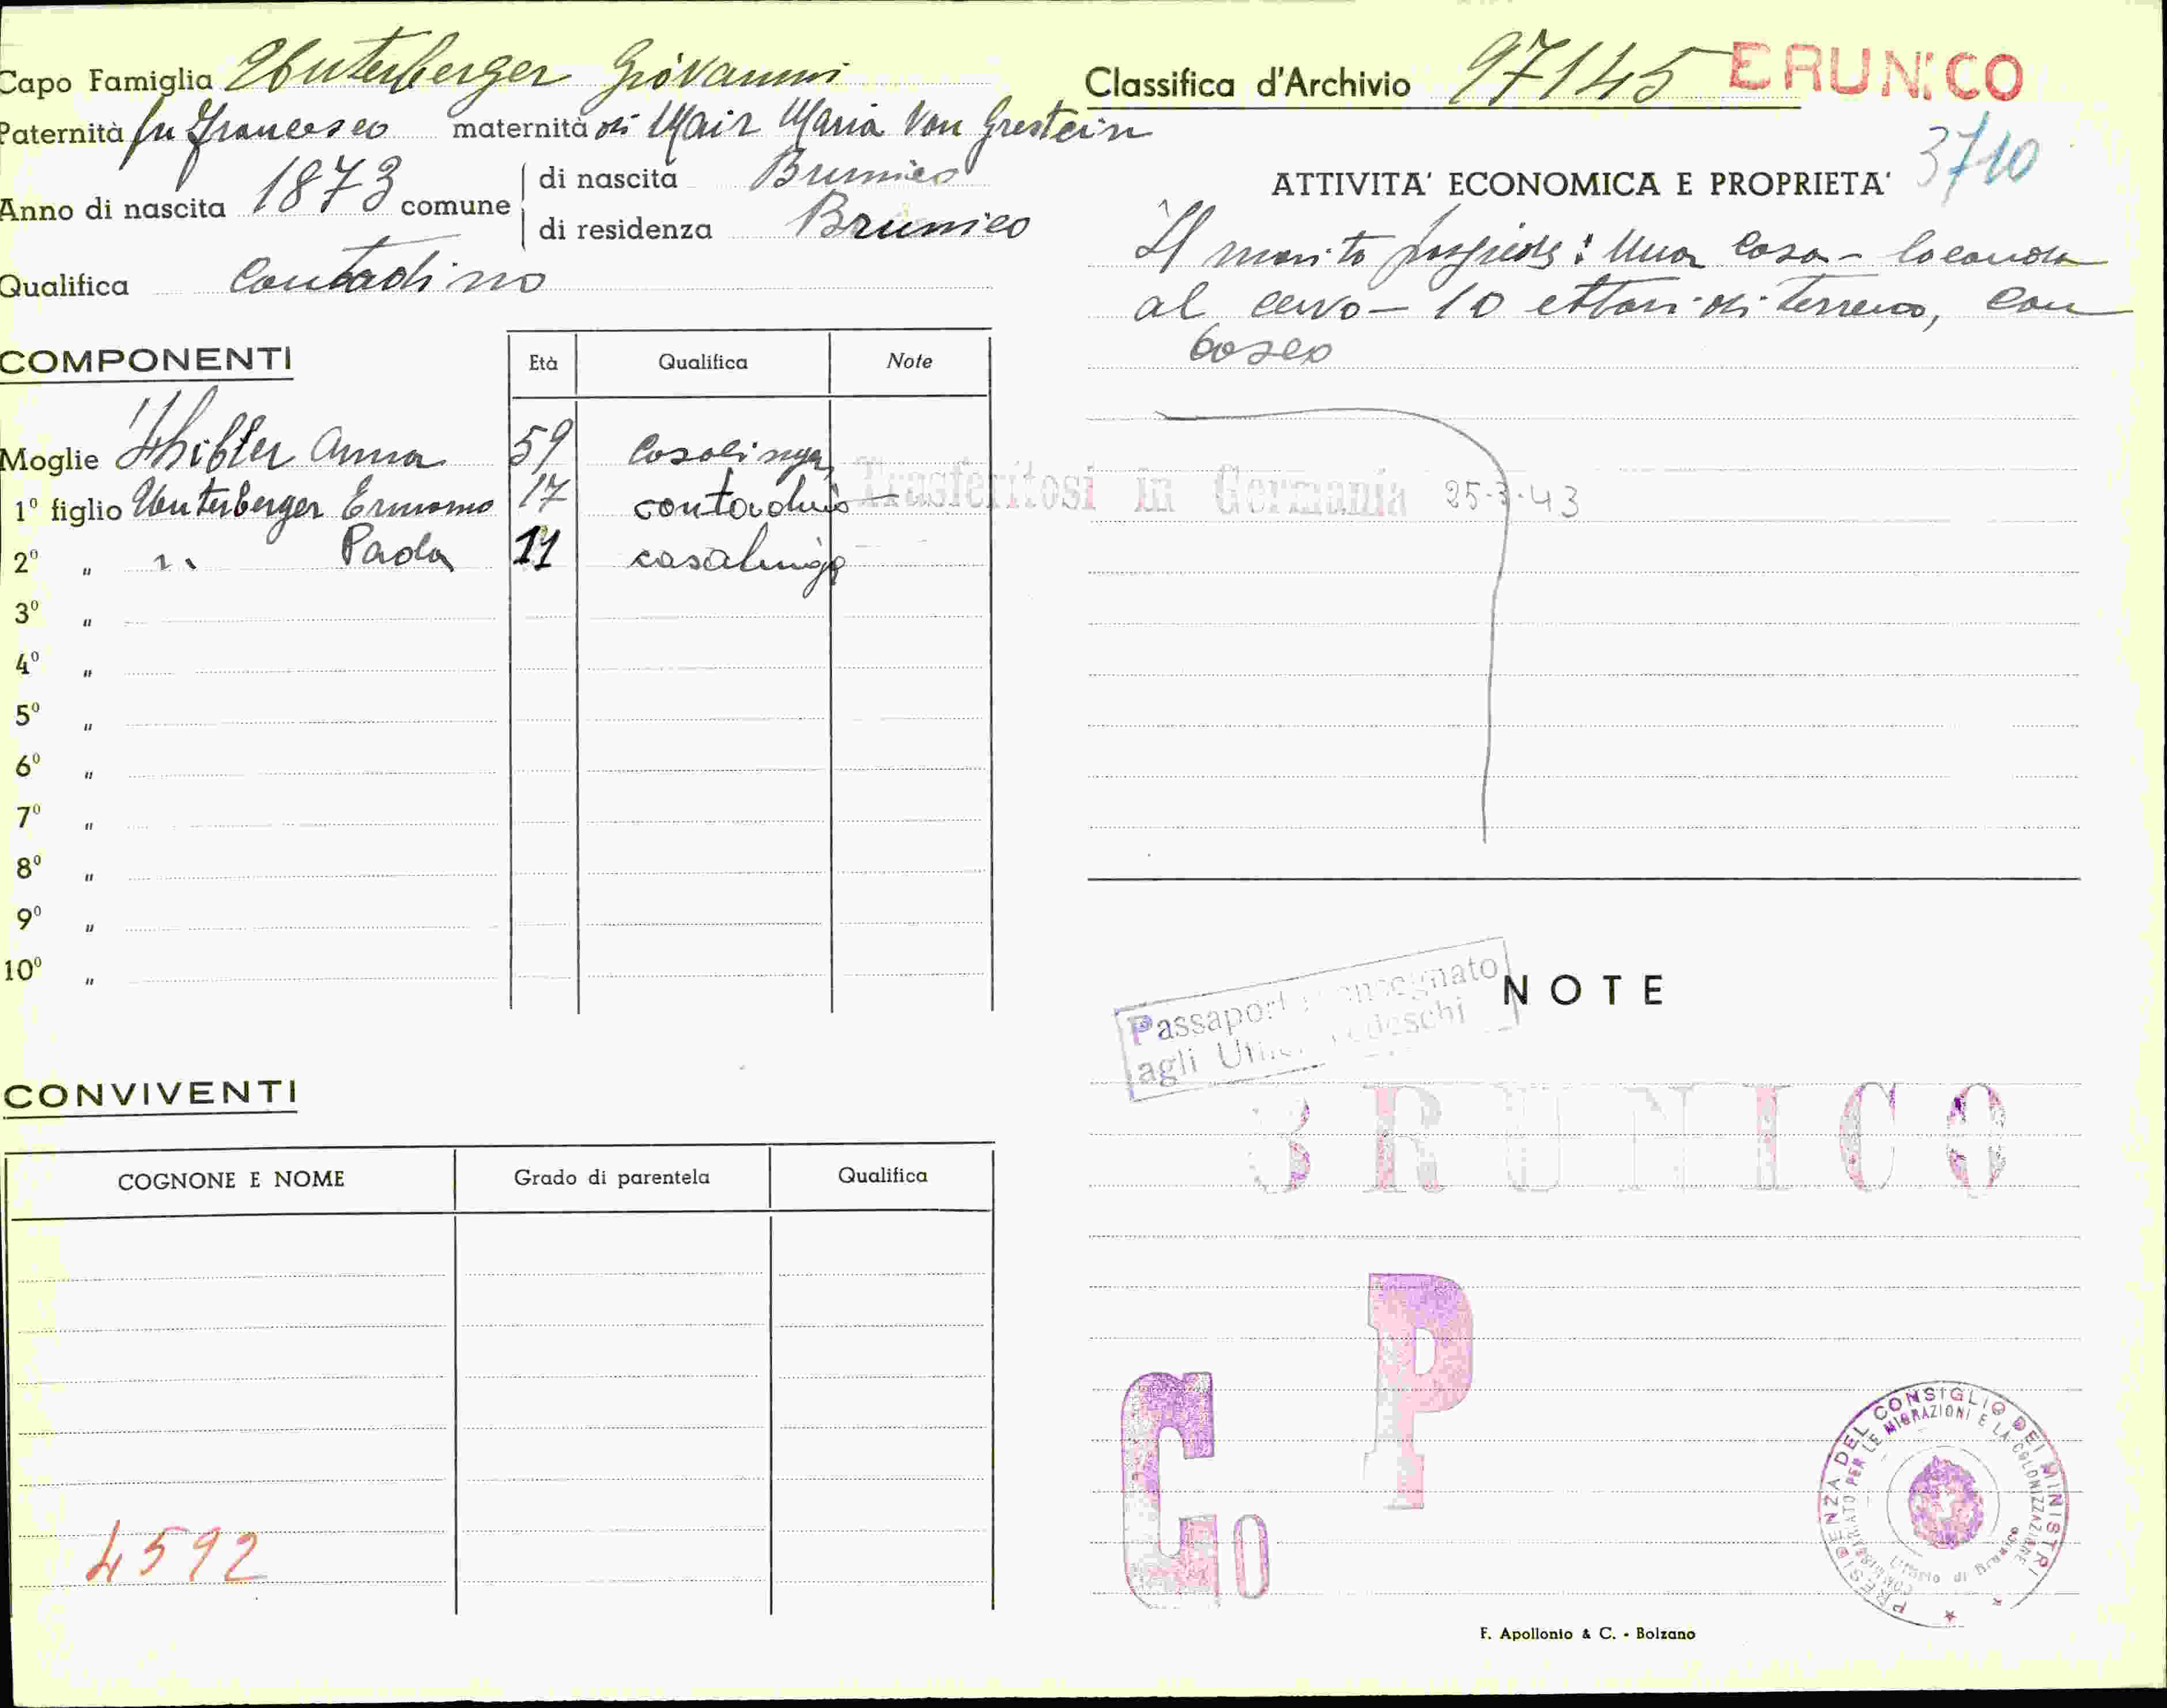 Capo Famiglia Unterberger Giovanni
Paternità fu Francesco maternità di Mair Maria Von Grestein
Anno di nascita 1873 comune di nascita Brunico
di residenza Brunico
Qualifica Contadino
COMPONENTI Età Qualifica Note
Moglie Anna 59 Casalinga
1º figlio Unterberger Ermanno 17 contadino
2º „ „ Paola 11 casalinga
3º „
4º „
5º „
6º „
7º „
8º „
9º „
10º „
CONVIVENTI
COGNONE E NOME Grado di parentela Qualifica
4592
Classifica d'Archivio 97145 BRUNICO
3710
ATTIVITA' ECONOMICA E PROPRIETA'
Il marito possiede: Una casa - locanda
al cervo - 10 ettari di terreno, con
bosco
Trasferitosi in Germania 25-3-43
Passaporto consegnato
agli Uffici Tedeschi
NOTE
BRUNICO
P
G
O
PRESIDENZA DEL CONSIGLIO DEI MINISTRI
COMMISSARIATO PER LE MIGRAZIONI E LA COLONIZZAZIONE
Ufficio di Brunico
F. Apollonio & C. - Bolzano